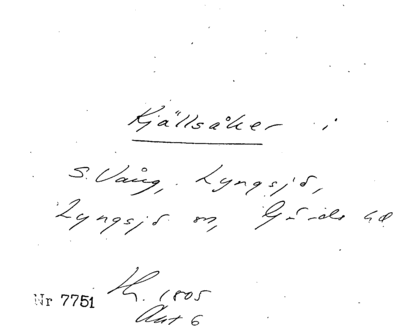 Kjällsåker i
S. Vång, Lyngsjö,
Lyngsjö sn, Gärds hd
Nr 7751
Th. 1805
Akt 6